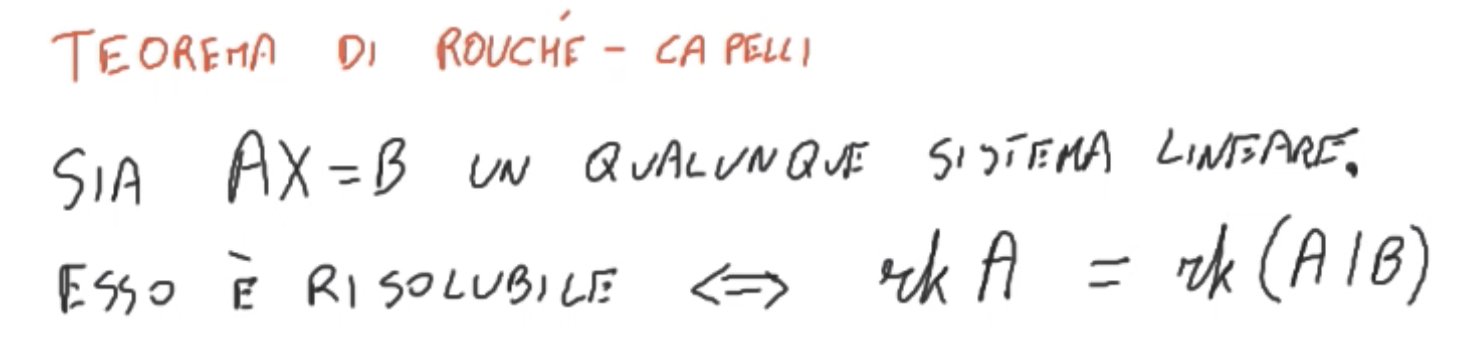 TEOREMA DI ROUCHÉ - CAPELLI
SIA AX = B UN QUALUNQUE SISTEMA LINEARE.
ESSO È RISOLUBILE <=> rk A = rk (A|B)